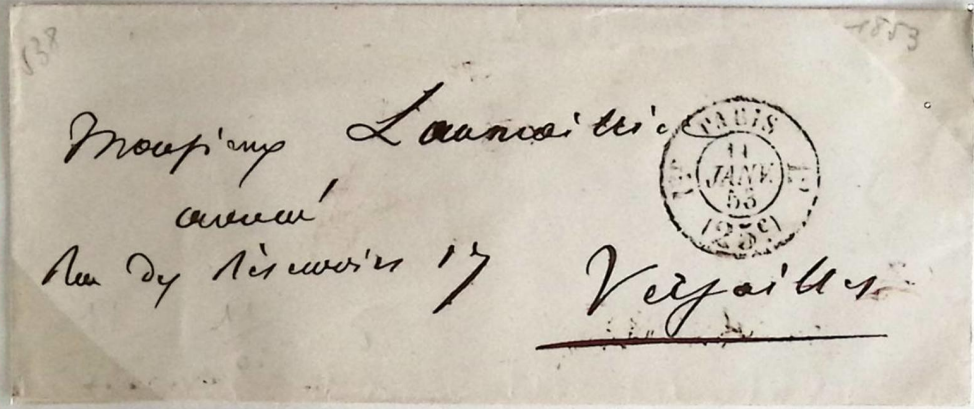 538
1853
Monsieur Launaillier
avoué
Rue des Réservoirs 17
Versailles
PARIS
11
JANV.
53
(25c)